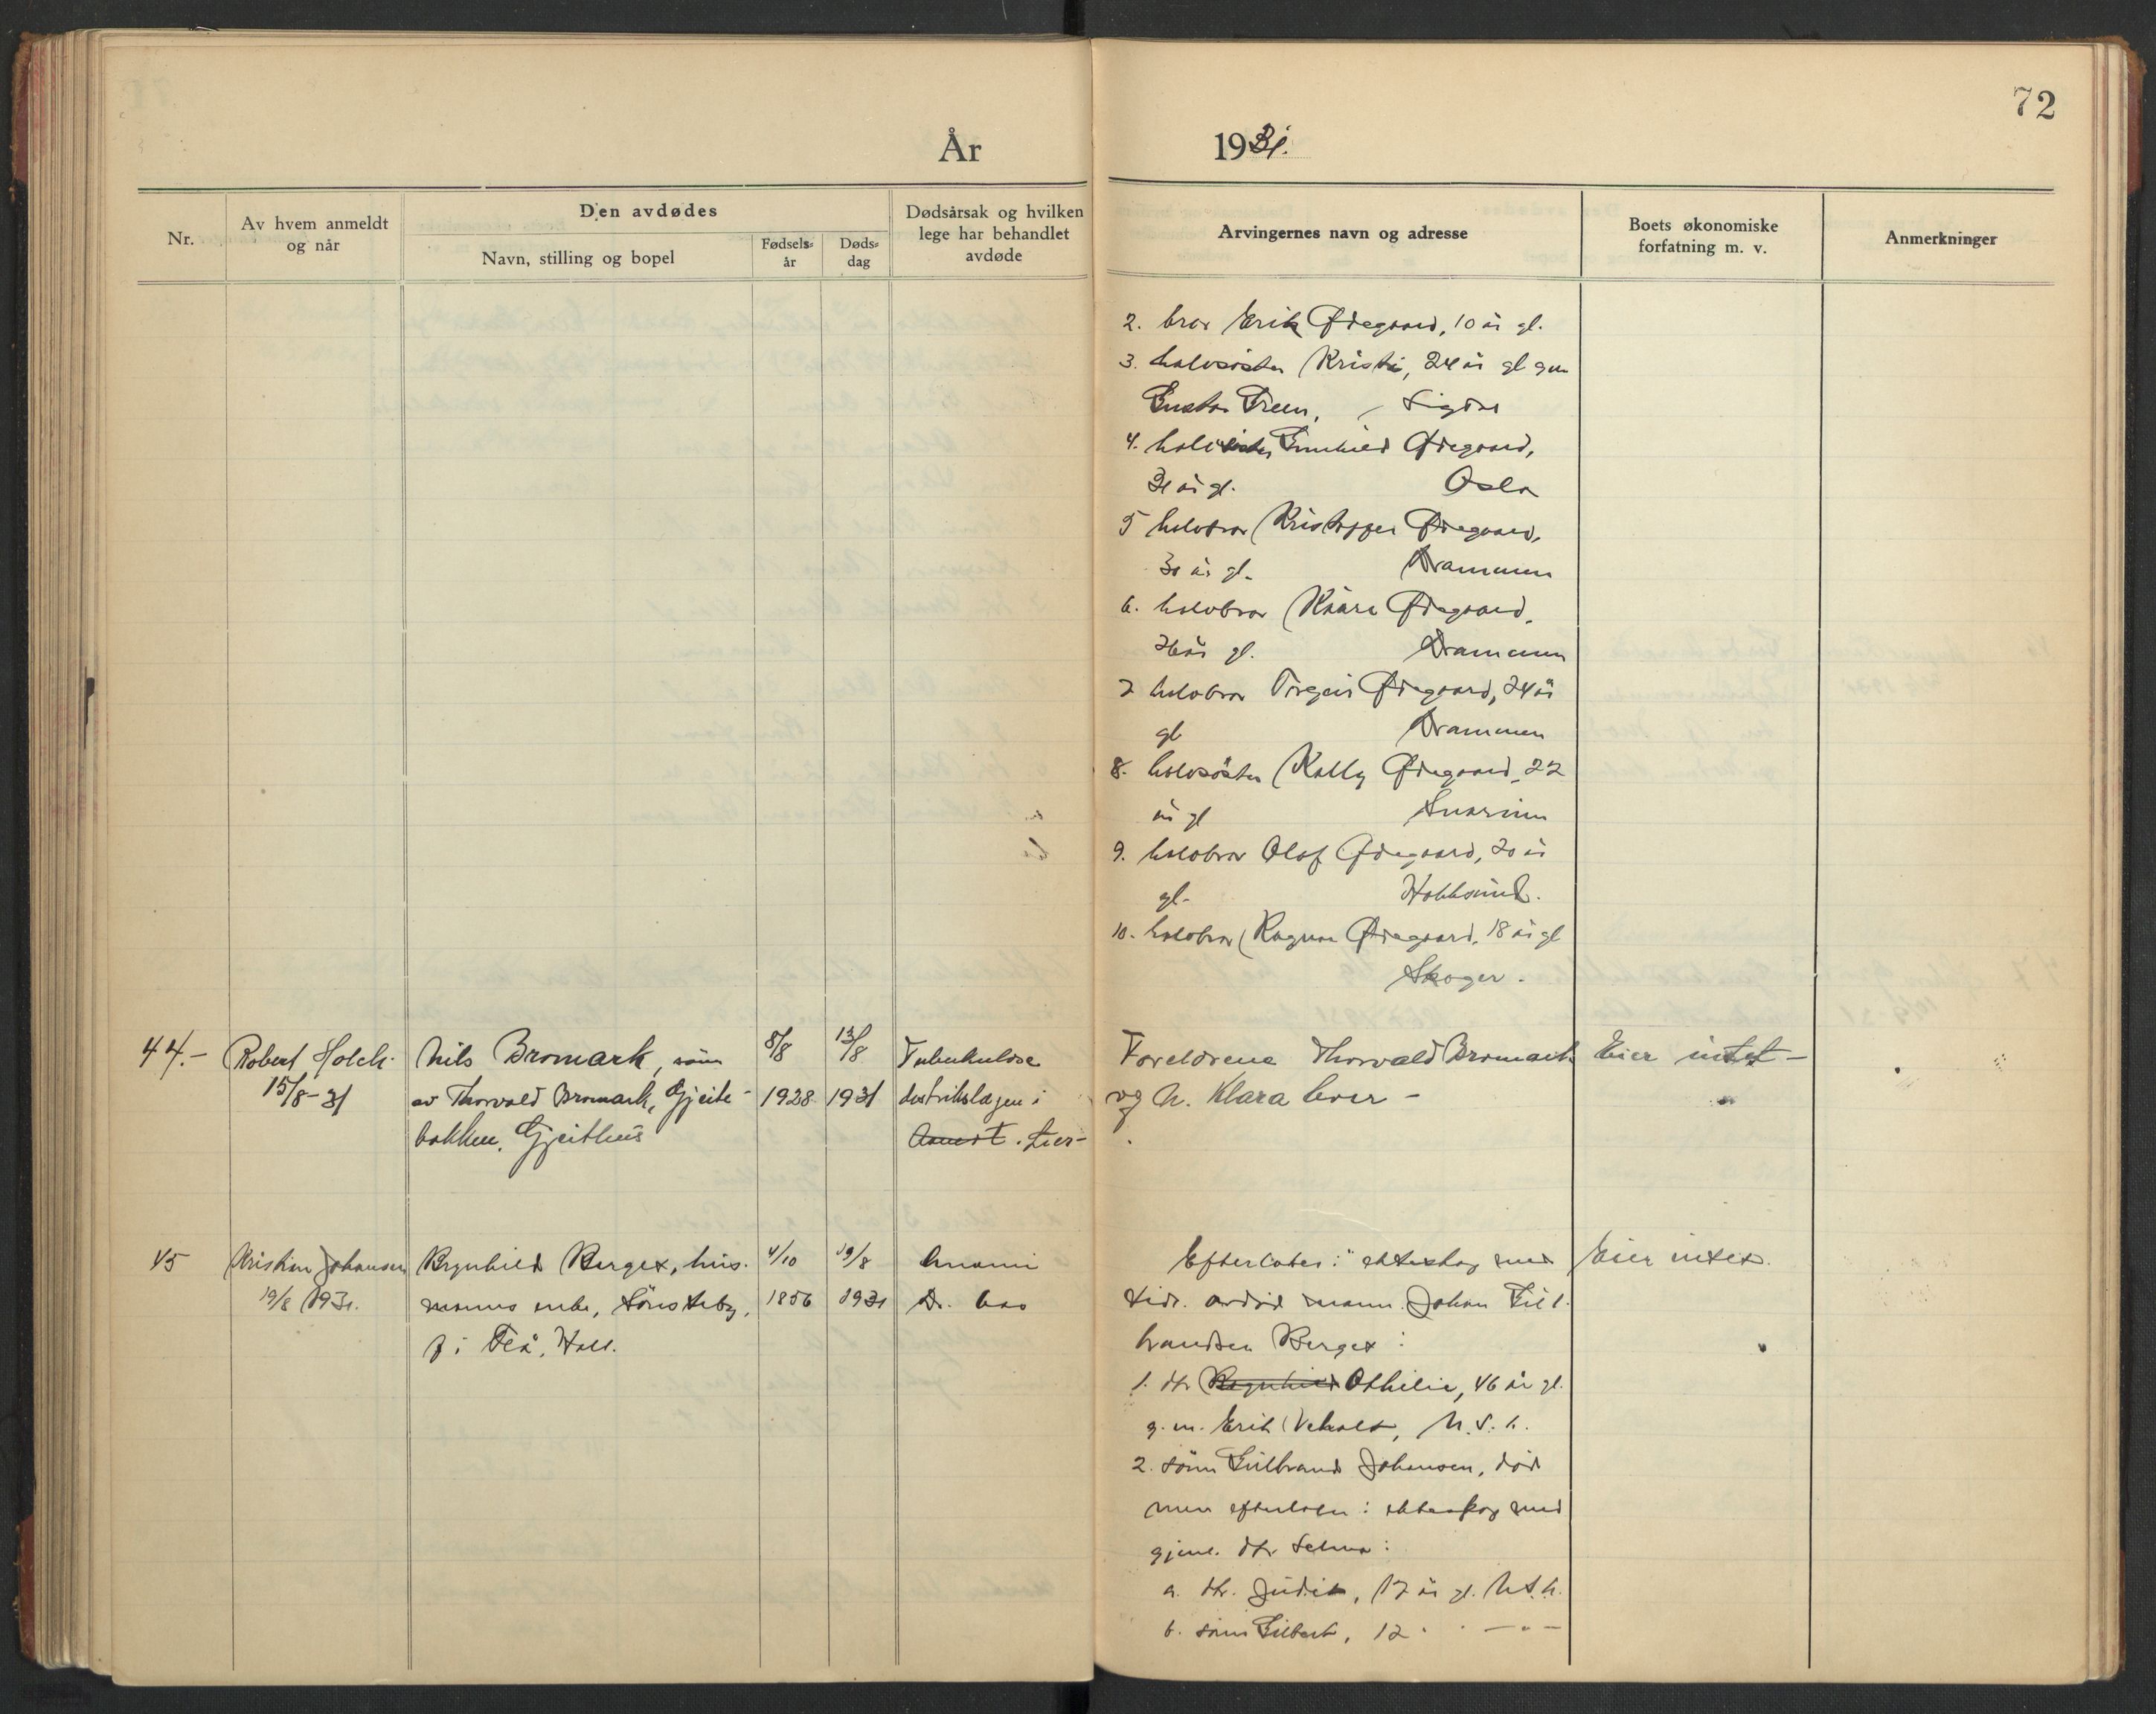 72
År 1931.
Nr.
Av hvem anmeldt
og når
Den avdødes
Navn, stilling og bopel
Fødsels=
år
Døds=
dag
Dødsårsak og hvilken
lege har behandlet
avdøde
Arvingernes navn og adresse
Boets økonomiske
forfatning m. v.
Anmerkninger
2. bror Erik Ødegaard, 10 år gl.
3. halvsöster Kristi, 24 år gl gm
Gustav Treen, Sigdal
4. halvsöster Gunhild Ødegaard,
31 år gl. Oslo
5 halvbror Kristoffer Ødegaard,
30 år gl. Drammen
6. halvbror Kåare Ødegaard,
26 år gl. Drammen
7 halvbror Torgeir Ødegaard, 24 år
gl Drammen
8. halvsöster Kally Ødegaard, 22
år gl Snarum
9. halvbror Olaf Ødegaard, 20 år
gl. Hokksund.
10. halvbror Ragnar Ødegaard, 18 år gl
Skoger.
44.-
Robert Holch.
15/8-31
Nils Bromark, sönn
av Thorvald Bromark, Gjeite-
bakken, Gjeithus
8/8
1928
13/8
1931
Tuberkulose
distriktslægen i
Lier-
Foreldrene Thorvald Bromark
og h. Klara lever -
Eier intet -
45
Kristian Johansen
19/8 1931.
Brynhild Berget, hus-
manns enke, Sönsteby,
f i Flå, Hall.
4/10
1856
19/8
1931
Anæmi
Dr. Aas
Efterlater i ekteskap med
tidl. avdöd mann Johan Gul-
brandsen Berget:
1. dtr Ragnhild Othilie, 46 år gl.
g. m. Erik Vehalt, N.S.h.
2. sönn Gulbrand Johansen, död
men efterlater i ekteskap med
gjenl. dtr. Selma:
a. dtr. Judit, 17 år gl. N.S.h.
b. sönn Gilbert, 12 " " — " —
Eier intet.